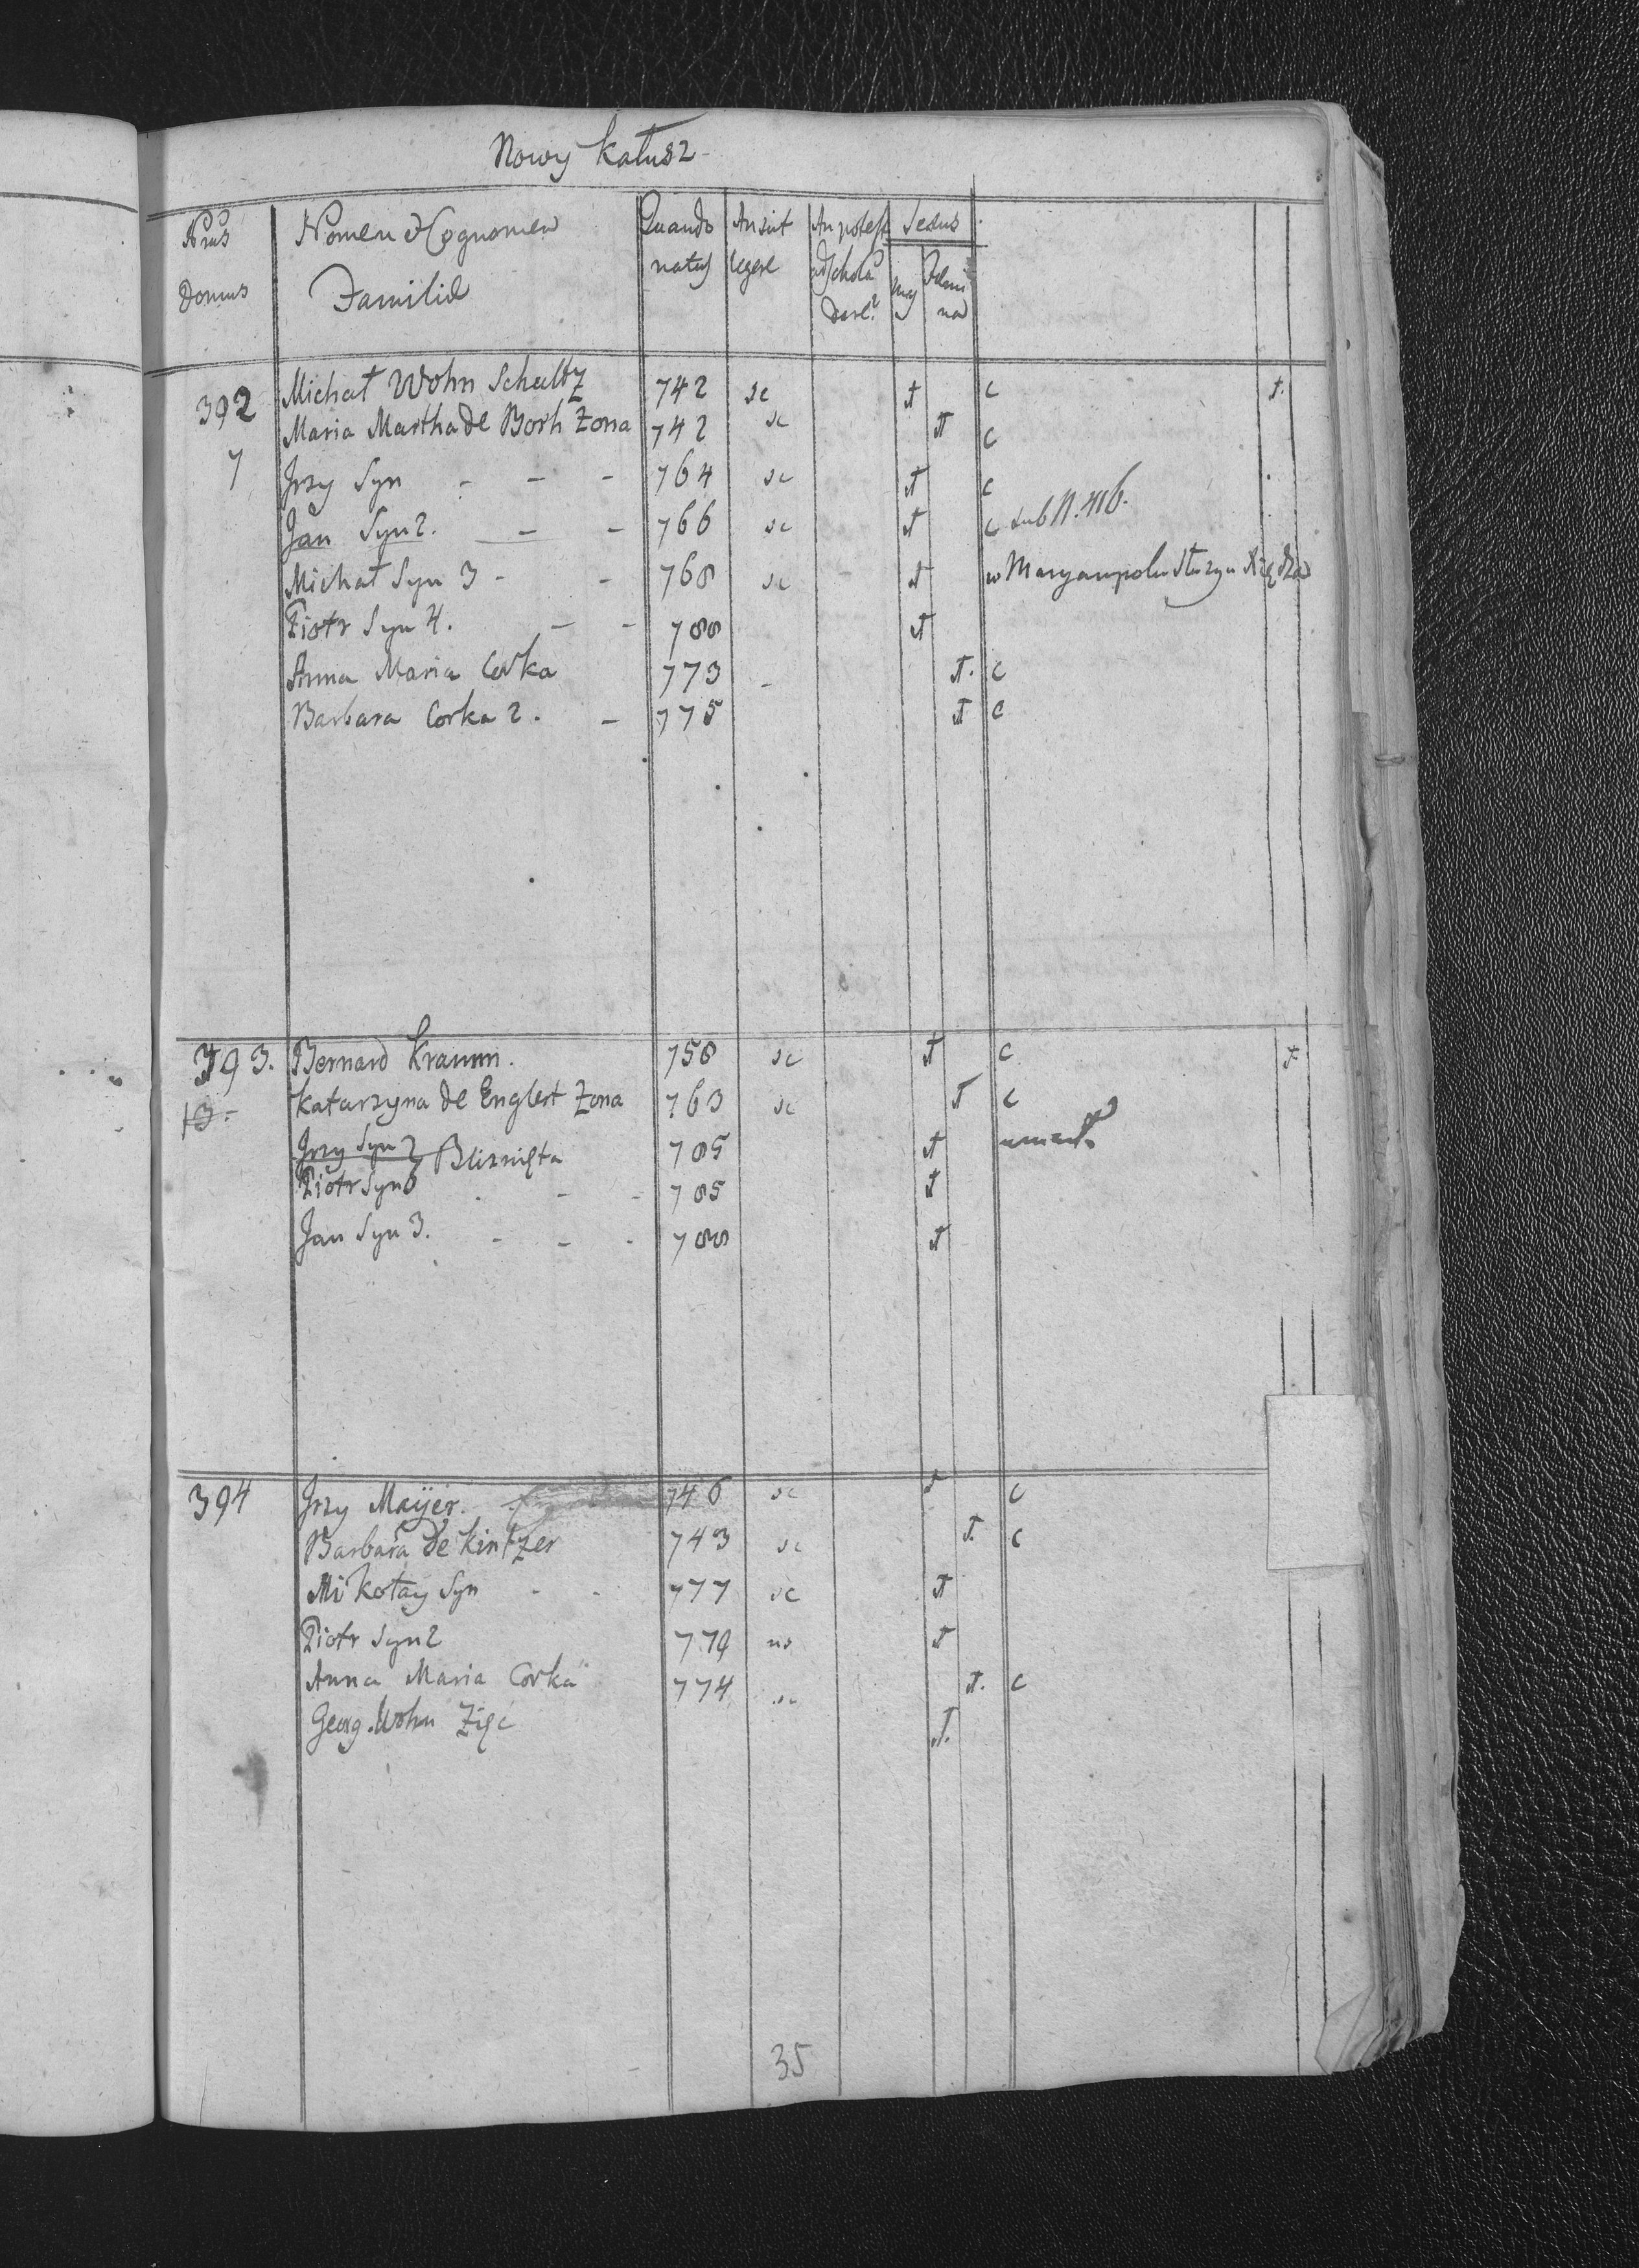 Nowy Kałusz
Nrus Domus
Nomen & Cognomen Familiae
Quando natus
An scit legere
An potest ad schola dare?
Sexus
Femina
392 Michał Wohn Schultz 742 sc † c †.
Maria Martha de Borh Zona 742 sc † c
7 Jrzy Syn - - - 764 sc † c
Jan Syn 2. - - 766 sc † c sub N. 416.
Michał Syn 3 - - 768 sc † w Maryampolu służy u Księdza
Piotr Syn 4. - - 788 †
Anna Maria Corka 773 - †. c
Barbara Corka 2. - 775 † c
393. Bernard Kramm. 758 sc † c †
13- Katarzyna de Englert Zona 763 sc † c
Jrzy Syn Bliznięta 785 † umarł
Piotr Syn - - 785 †
Jan Syn 3. - - - 788 †
394 Jrzy Maÿer. 746 sc † c
Barbara de Kintzer 743 sc †. c
Mikołay Syn - - 777 sc †
Piotr Syn 2 779 ns †
Anna Maria Corka 774 sc †. c
Georg. Wohn Zięć †.
35